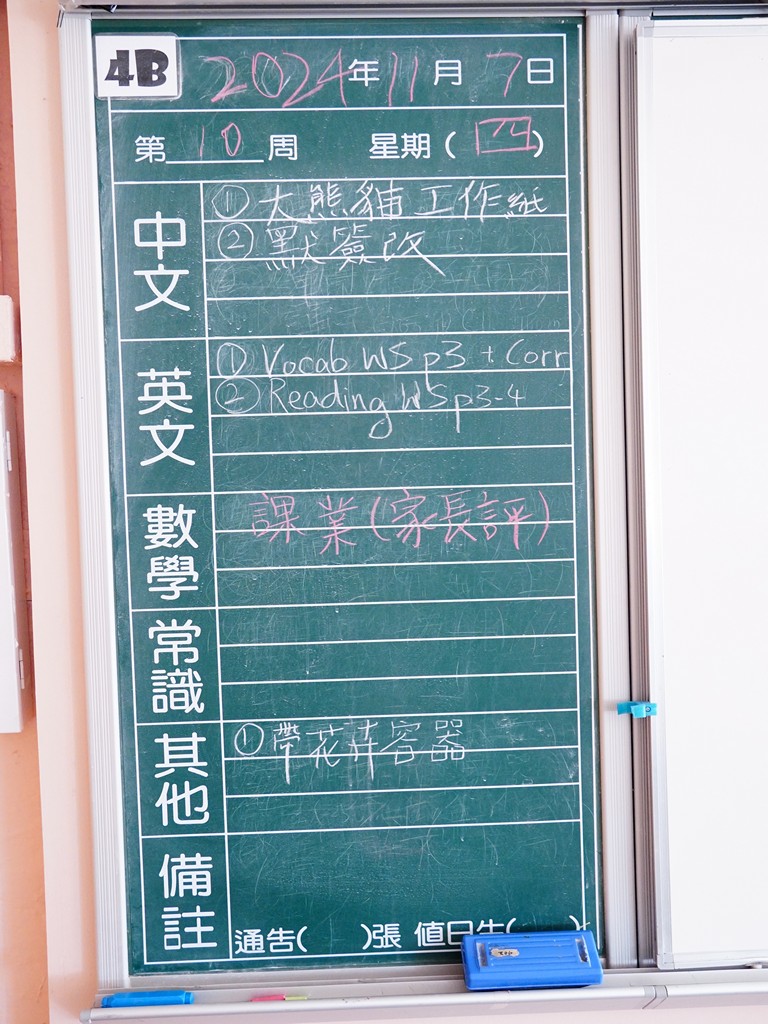 4B
2024年11月7日
第10周 星期(四)
中文
①大熊貓工作紙
②默簽改
英文
①Vocab WS p3 + Corr
②Reading WS p3-4
數學
課業(家長評)
常識
其他
①帶花卉容器
備註
通告( )張 值日生( )